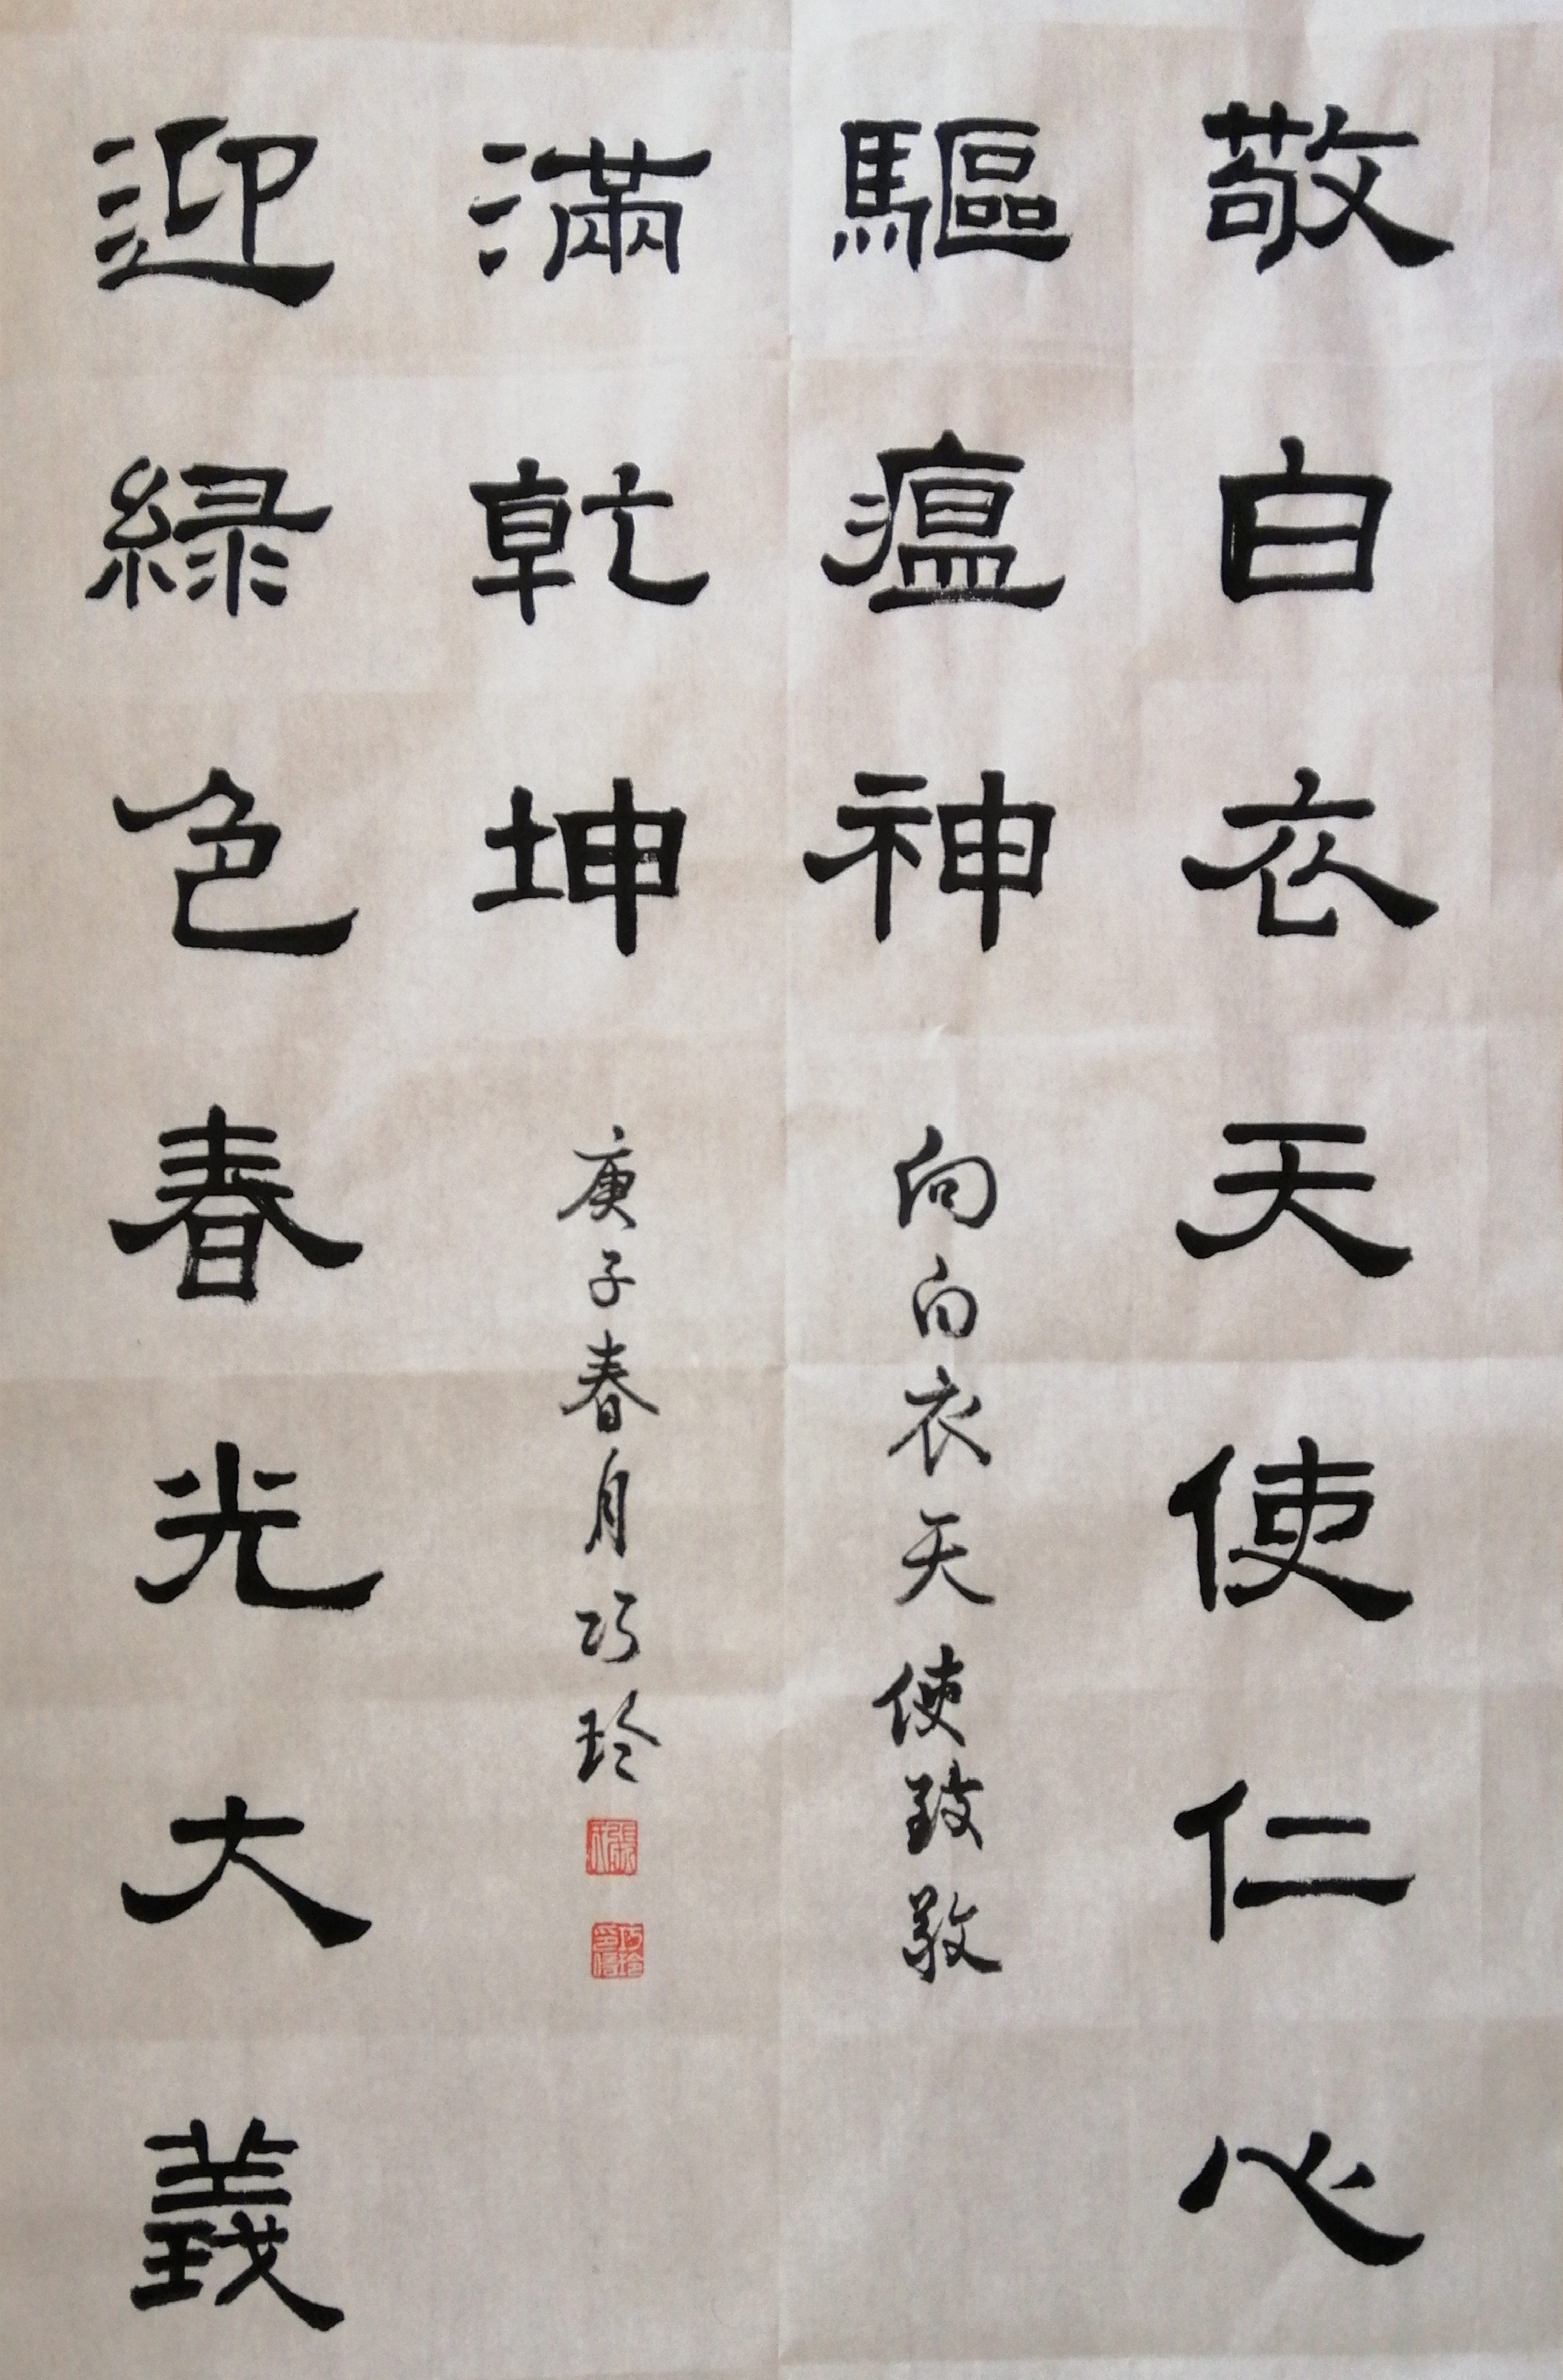 敬白衣天使仁心
驅瘟神
向白衣天使致敬
迎緑色春光大義
滿乾坤
庚子春月巧玲
巧玲印信